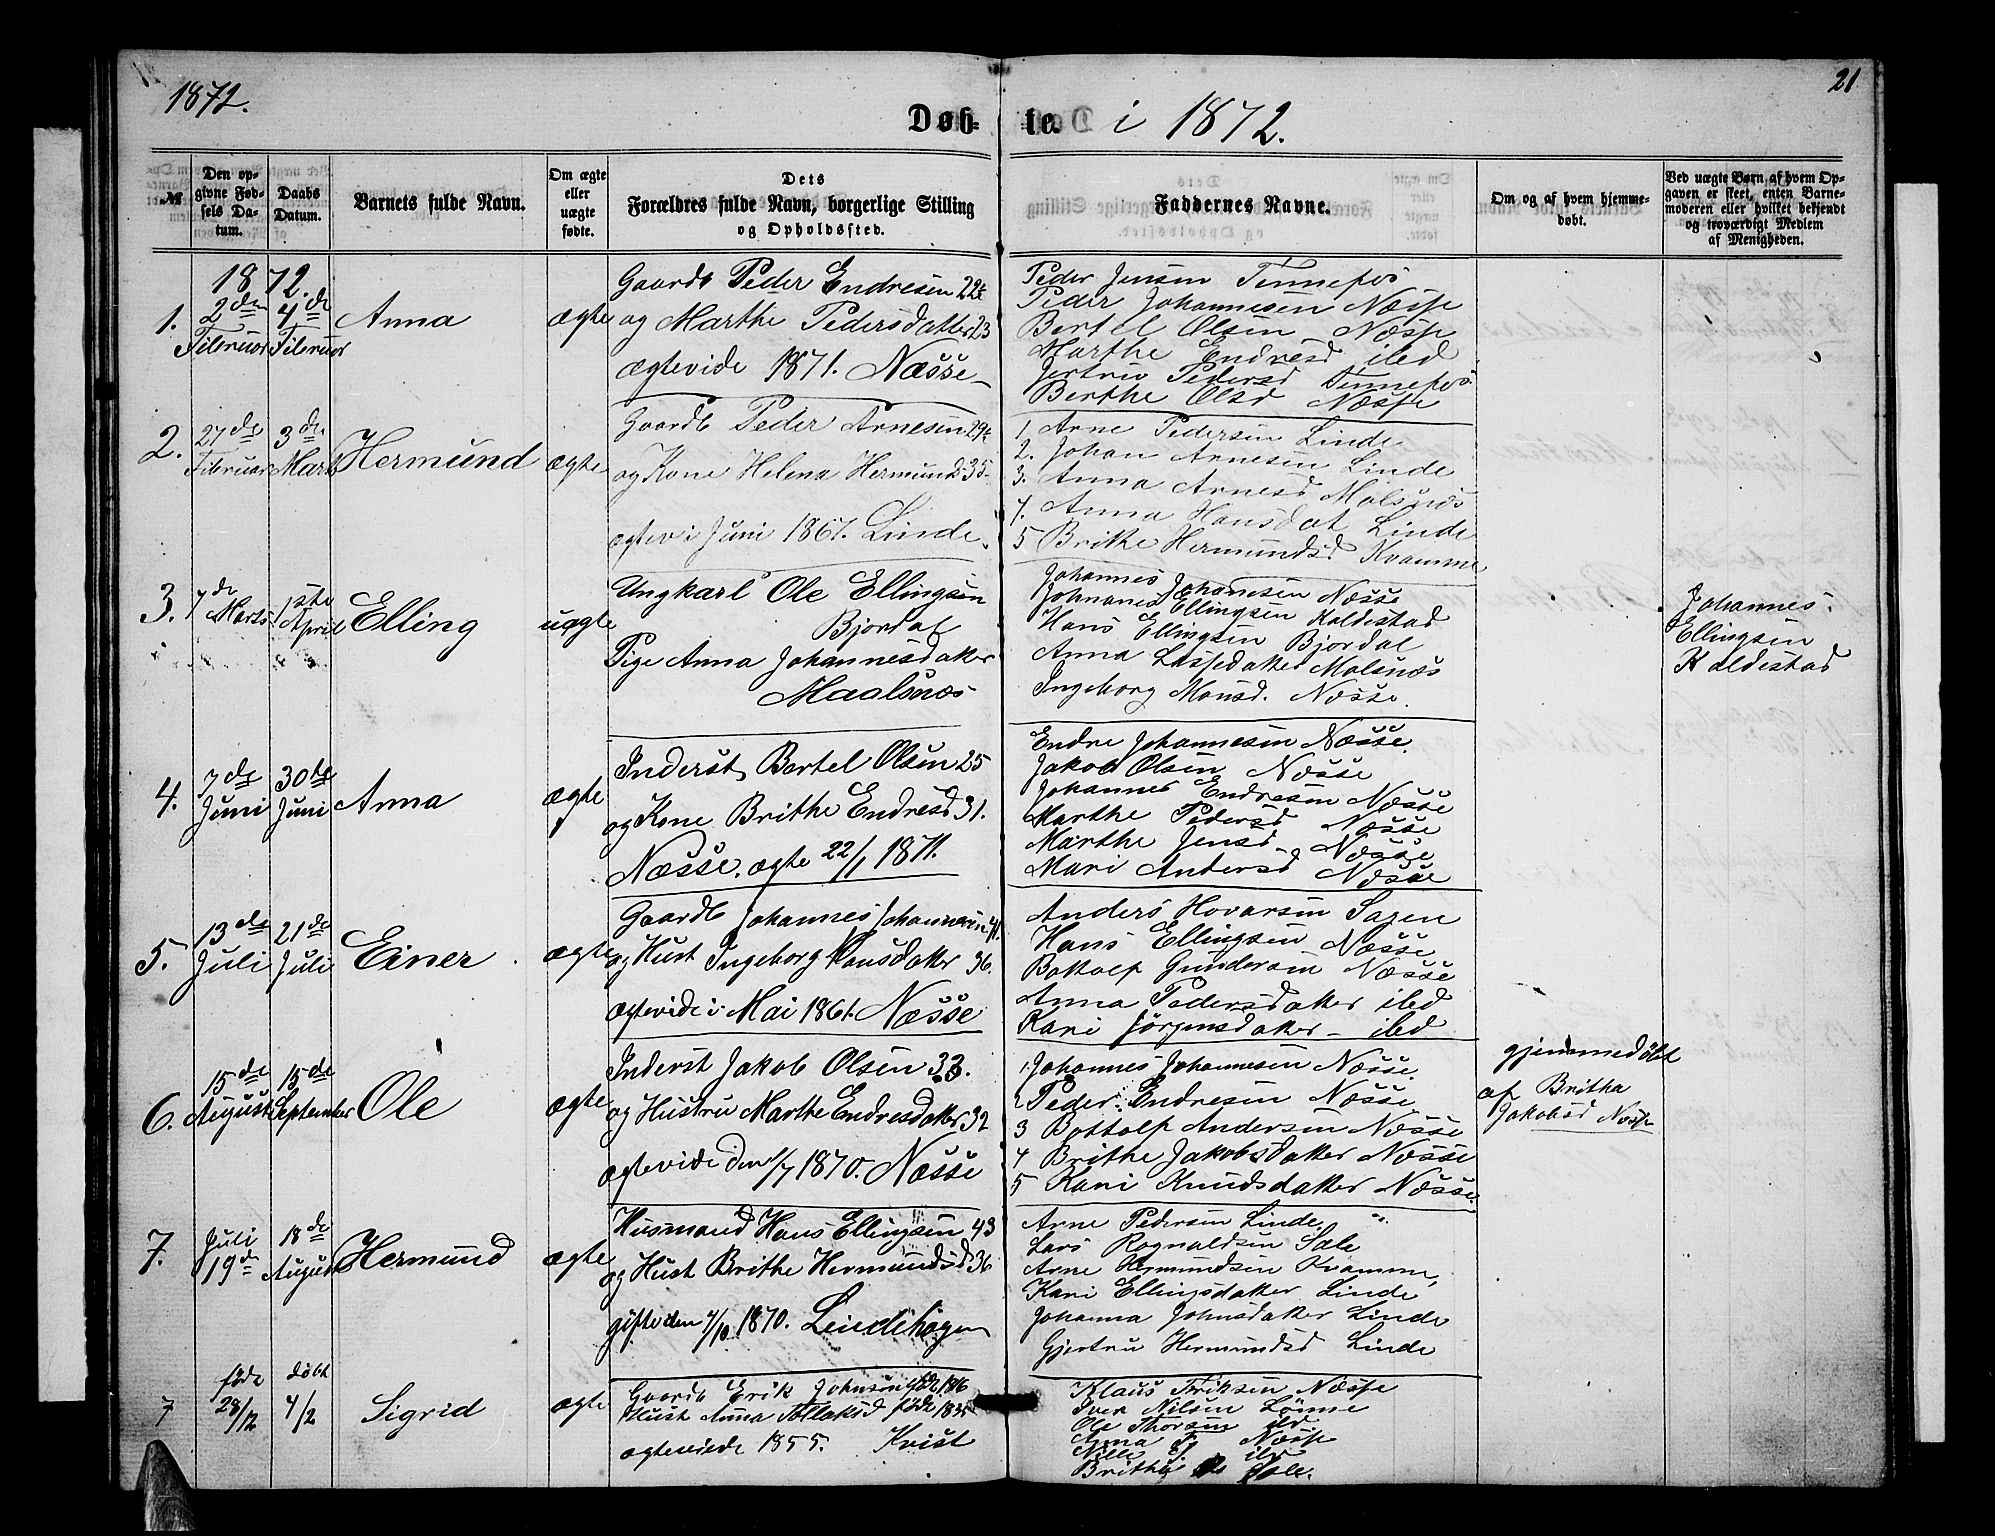 1872.
21
Døb-
te. i 1872.
№
Den op-
givne Fød-
sels Da-
tum.
Daabs
Datum.
Barnets fulde Navn.
Om ægte
eller
uægte
fødte.
Dets
Forældres fulde Navn, borgerlige Stilling
og Opholdssted.
Faddernes Navne.
Om og af hvem hjemme-
døbt.
Ved uægte Børn af hvem Op-
gaven er skeet, enten Barne-
moderen eller hvilket bekjendt
og troværdigt Medlem
af Menigheden.
1872.
1.
2den
Februar
4de
Februar
Anna
ægte
Gaardb Peder Endresen 22
og Marthe Pedersdatter 23
ægtevide 1871. Næsse
Peder Jensen Finnefos
Peder Johannesen Næsse
Bertel Olsen Næsse
Marthe Endresd ibd
Jertriv Pedersd Finnefos
Berthe Olsd Næsse
2.
27de
Februar
3de
Marts
Hermund
ægte
Gaardb Peder Arnesen 29
og Kone Helena Hermunds 35
ægtev i Juni 1861. Linde
1 Arne Pedersen Linde
2. Johan Arnesen Linde
3. Anna Arnesd Malsnæs
4. Anna Hansdat Linde
5 Brithe Hermundsd Kvamme
3.
7de
Marts
1ste
April
Elling
uægte
Ungkarl Ole Ellingsen
Bjordal
Pige Anna Johannesdatter
Maalsnæs
Johannes Johanesen Næsse
Johanes Ellingsen Koldestad
Hans Ellingsen Bjordal
Anna Lassedatter Malsnæs
Ingeborg Monsd. Næsse.
Johannes
Ellingsen
Koldestad
4.
7de
Juni
30te
Juni
Anna
ægte
Inderst Bertel Olsen 25
og Kone Brithe Endresd 31.
Næsse. ægte 22/1 1871.
Endre Johannesen Næsse.
Jakob Olsen Næsse
Johannes Endresen Næsse
Marthe Pedersd Næsse
Marthe Jensd Næsse
Mari Andersd Næsse
5.
13de
Juli
21de
Juli
Einer
ægte
Gaardb Johannes Johannesen 41.
og Hust Ingeborg Hansdatter 36.
ægtevide i Mai 1861. Næsse
Anders Hovarsen Sagen
Hans Ellingsen Næsse
Bottolf Gundersen Næsse
Anna Pedersdatter ibd
Kari Jörgensdatter – ibd
6.
15de
August
15de
September
Ole
ægte
Inderst Jakob Olsen 33.
og Hustru Marthe Endresdatter 32
ægtevide den 1/7 1870. Næsse
1. Johannes Johannesen Næsse.
2 Peder Endresen Næsse
3 Bottolf Andersen Næsse
4 Brithe Jakobsdatter Næsse
5 Kari Knudsdatter Næsse.
gjemmedöbt
af Britha
Jakobsd Næsse
7.
Juli
19de
18de
August
Hermund
ægte
Husmand Hans Ellingsen 43
og Hust Brithe Hermundsd 36
gifte den 4/10 1870. Lindehagen
Arne Pedersen Linde.
Lars Rognaldsen Sale
Arne Hermundsen Kvamme,
Kari Ellingsdatter Linde
Johanna Johnsdatter Linde
Gjertru Hermundsd Linde
7
föde
28/12
döbt
4/2
Sigrid
ægte
Gaardb Erik Johnson föde 1816
Hust Anna Atlaksd föde 1835
ægteviede 1855. Kvist
Klaus Eriksen Næsse
Iver Nilsen Lönne
Ole Thorsen ibd
Anna Næsse
Nille ibd
Britha Sale.